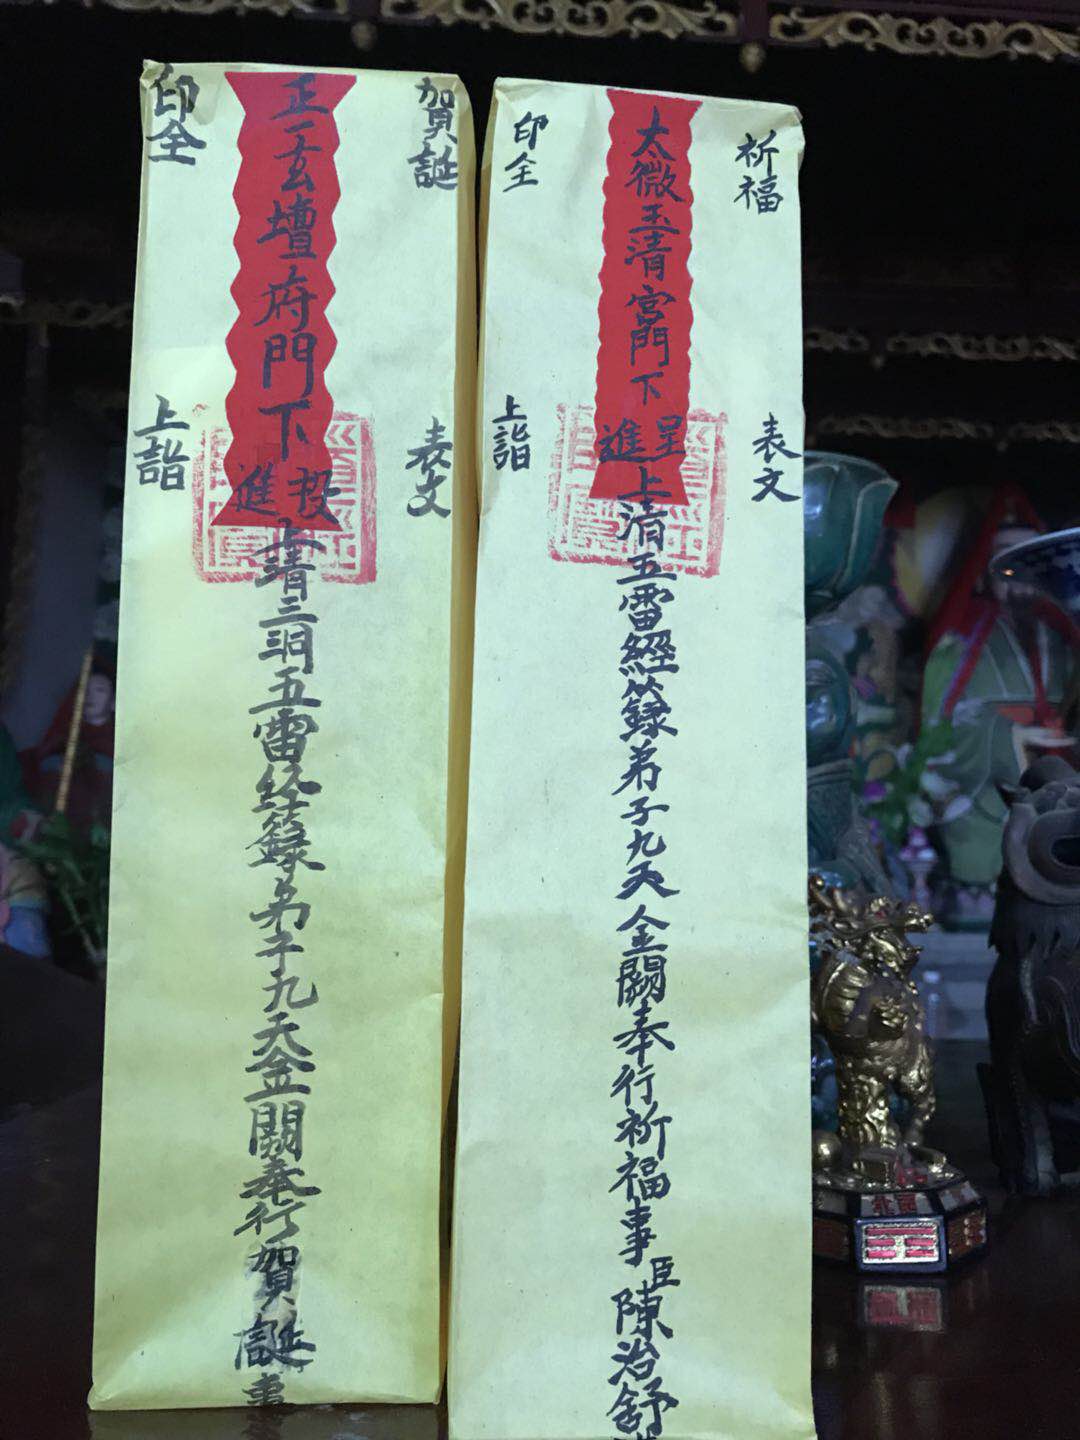 祈福
表文
太微玉清宮門下
呈進
上清五雷經籙弟子九天金闕奉行祈福事臣陳治舒
印全
上詣
賀誕
表文
正一玄壇府門下
投進
上清三洞五雷經籙弟子九天金闕奉行賀誕事
印全
上詣